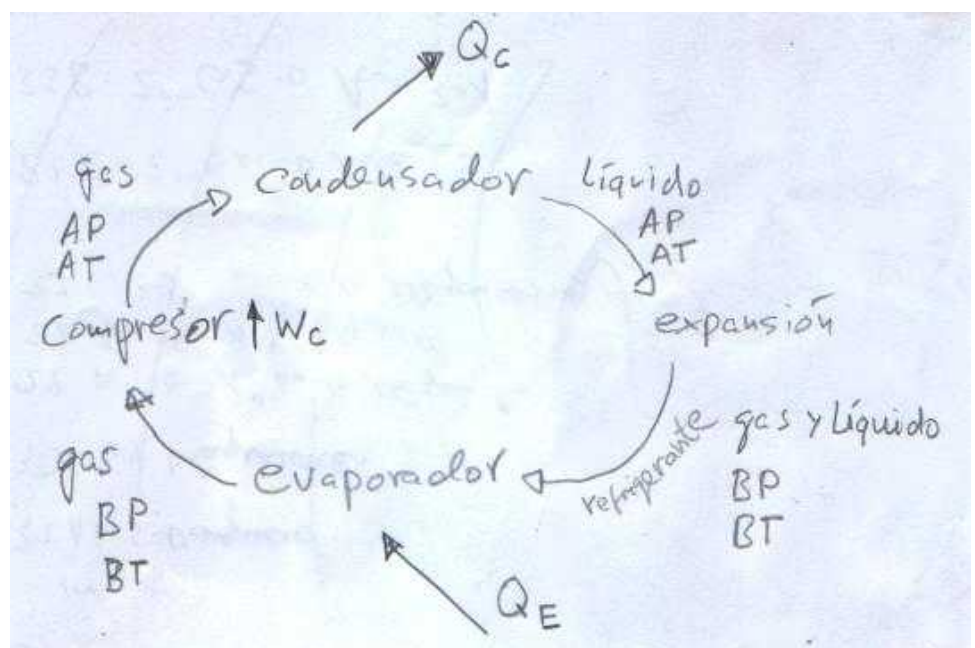 Qc
gas
AP
AT
condensador
líquido
AP
AT
compresor ↑ Wc
expansión
refrigerante
gas y líquido
BP
BT
evaporador
gas
BP
BT
QE